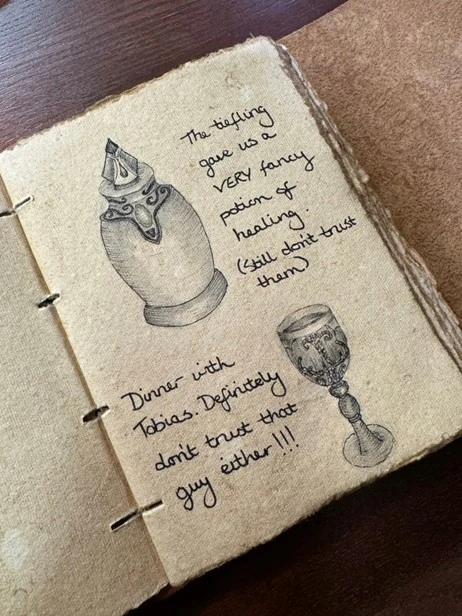 The tiefling
gave us a
VERY fancy
potion of
healing.
(Still don't trust
them)
Dinner with
Tobias. Definitely
don't trust that
guy either!!!